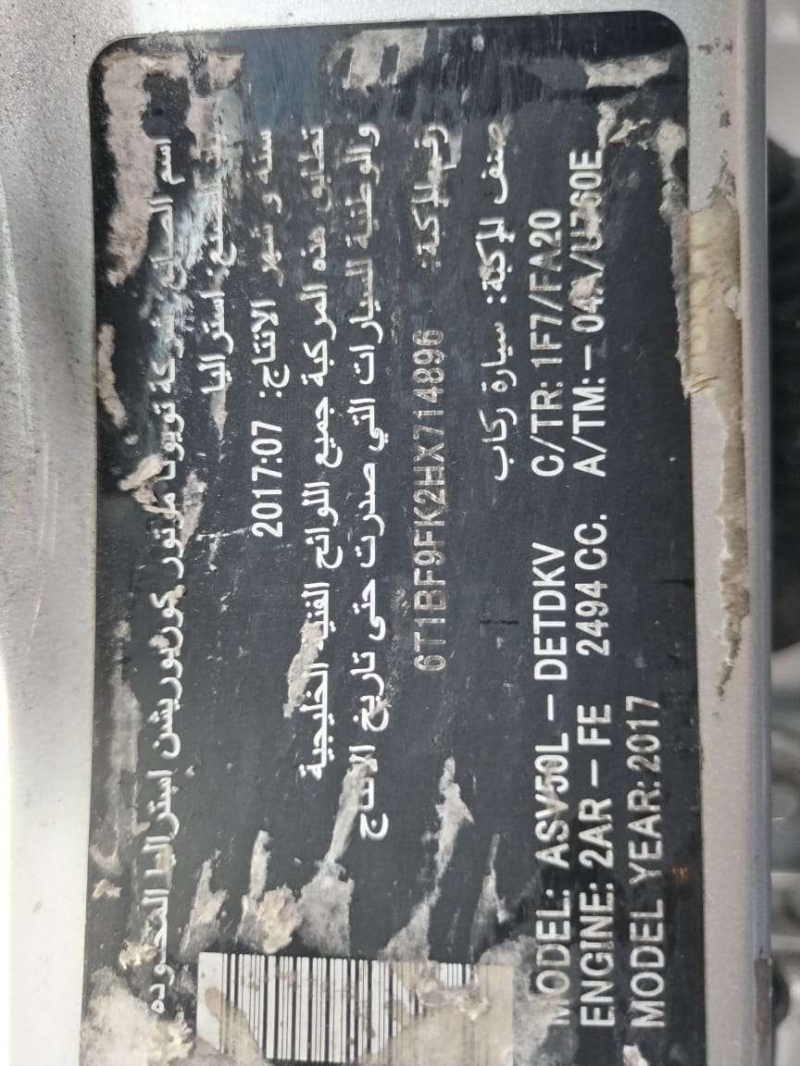 اسم الصانع: شركة تويوتا موتور كوربوريشن استراليا المحدودة
بلد الصنع: استراليا
سنة و شهر الانتاج: 2017:07
تطابق هذه المركبة جميع اللوائح الفنية الخليجية
والوطنية للسيارات التي صدرت حتى تاريخ الانتاج
رقم المركبة: 6T1BF9FK2HX714896
صنف المركبة: سيارة ركاب
MODEL: ASV50L – DETDKV C/TR: 1F7/FA20
ENGINE: 2AR – FE 2494 CC. A/TM: – 04A/U760E
MODEL YEAR: 2017